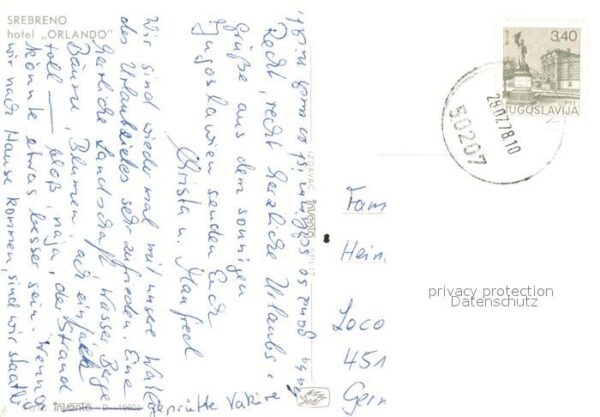 SREBRENO
hotel „ORLANDO"
Recht, recht herzliche Urlaubs-
grüße aus dem sonnigen
Jugoslawien senden Euch
Christa u. Manfred
Wir sind wieder mal mit unserer Wahl
des Urlaubszieles sehr zufrieden. Eine
herrliche Landschaft, Wasser, Berge
Bäume, Blumen, ach einfach
toll — bloß, naja, der Strand
könnte etwas besser sein. Wenn
wir nach Hause kommen, sind wir staatlich
geprüfte
IZDAVAČ SPLIT
3,40
JUGOSLAVIJA
PTT
28.07.78.10
50207
Fam
Hein
Loco
451
Germ
privacy protection
Datenschutz